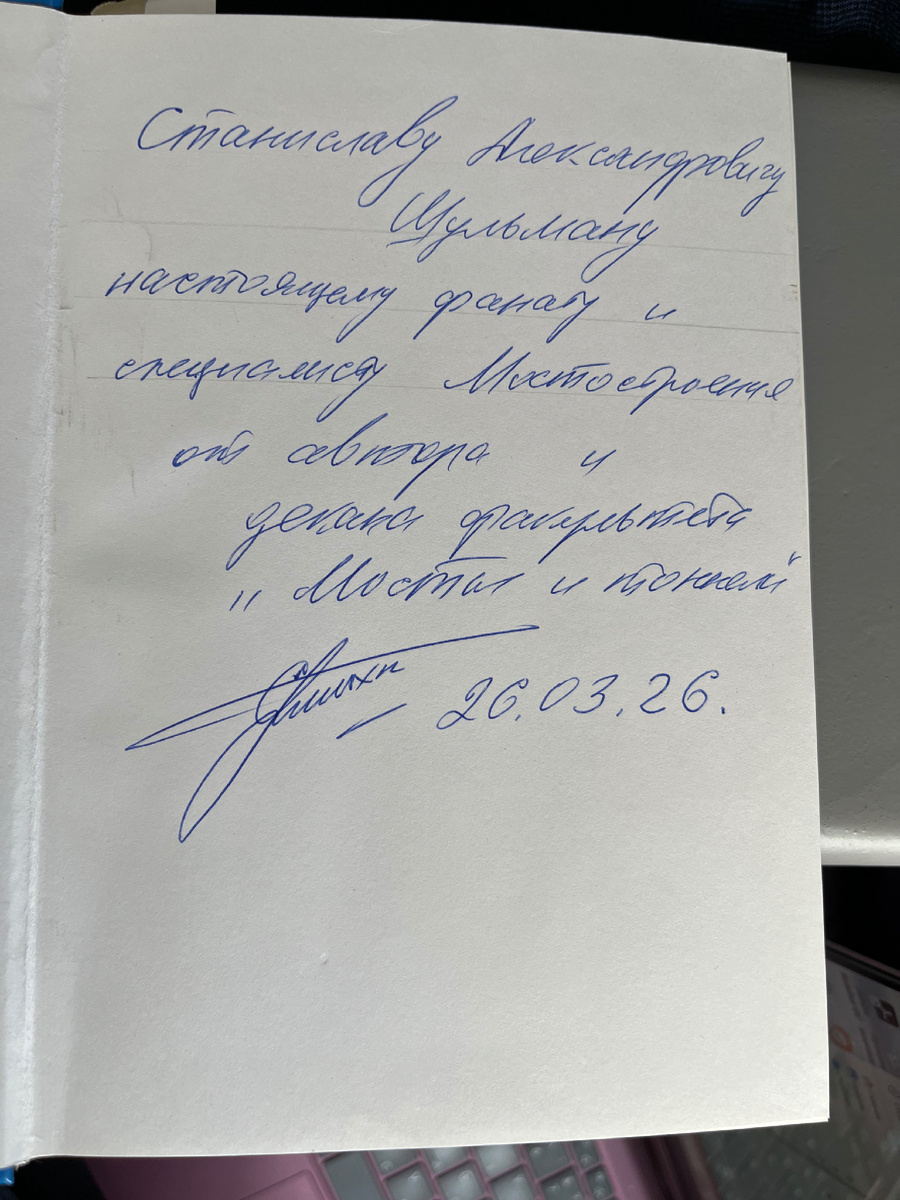 Станиславу Александровичу
Шульману
настоящему фанату и
специалисту Мостостроения
от автора и
декана факультета
"Мосты и тоннели"
26.03.26.